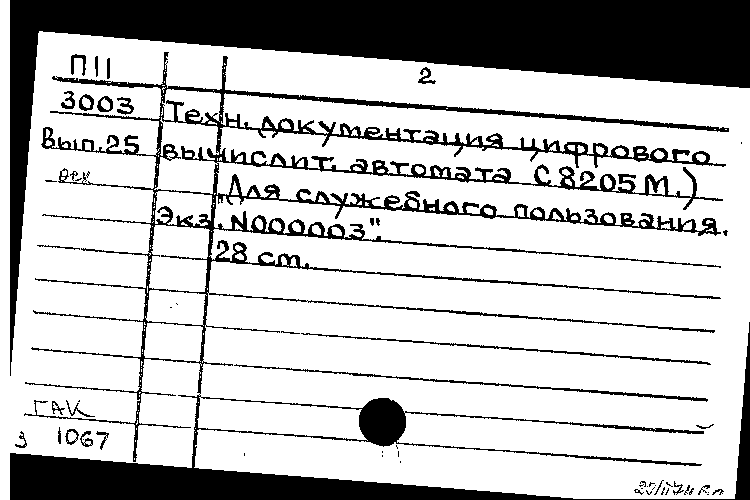 П11 2
3003 Техн. документация цифрового
Вып.25 вычислит. автомата С8205М.)
"Для служебного пользования.
Экз. N000003".
28 см.
ГАК
3 1067